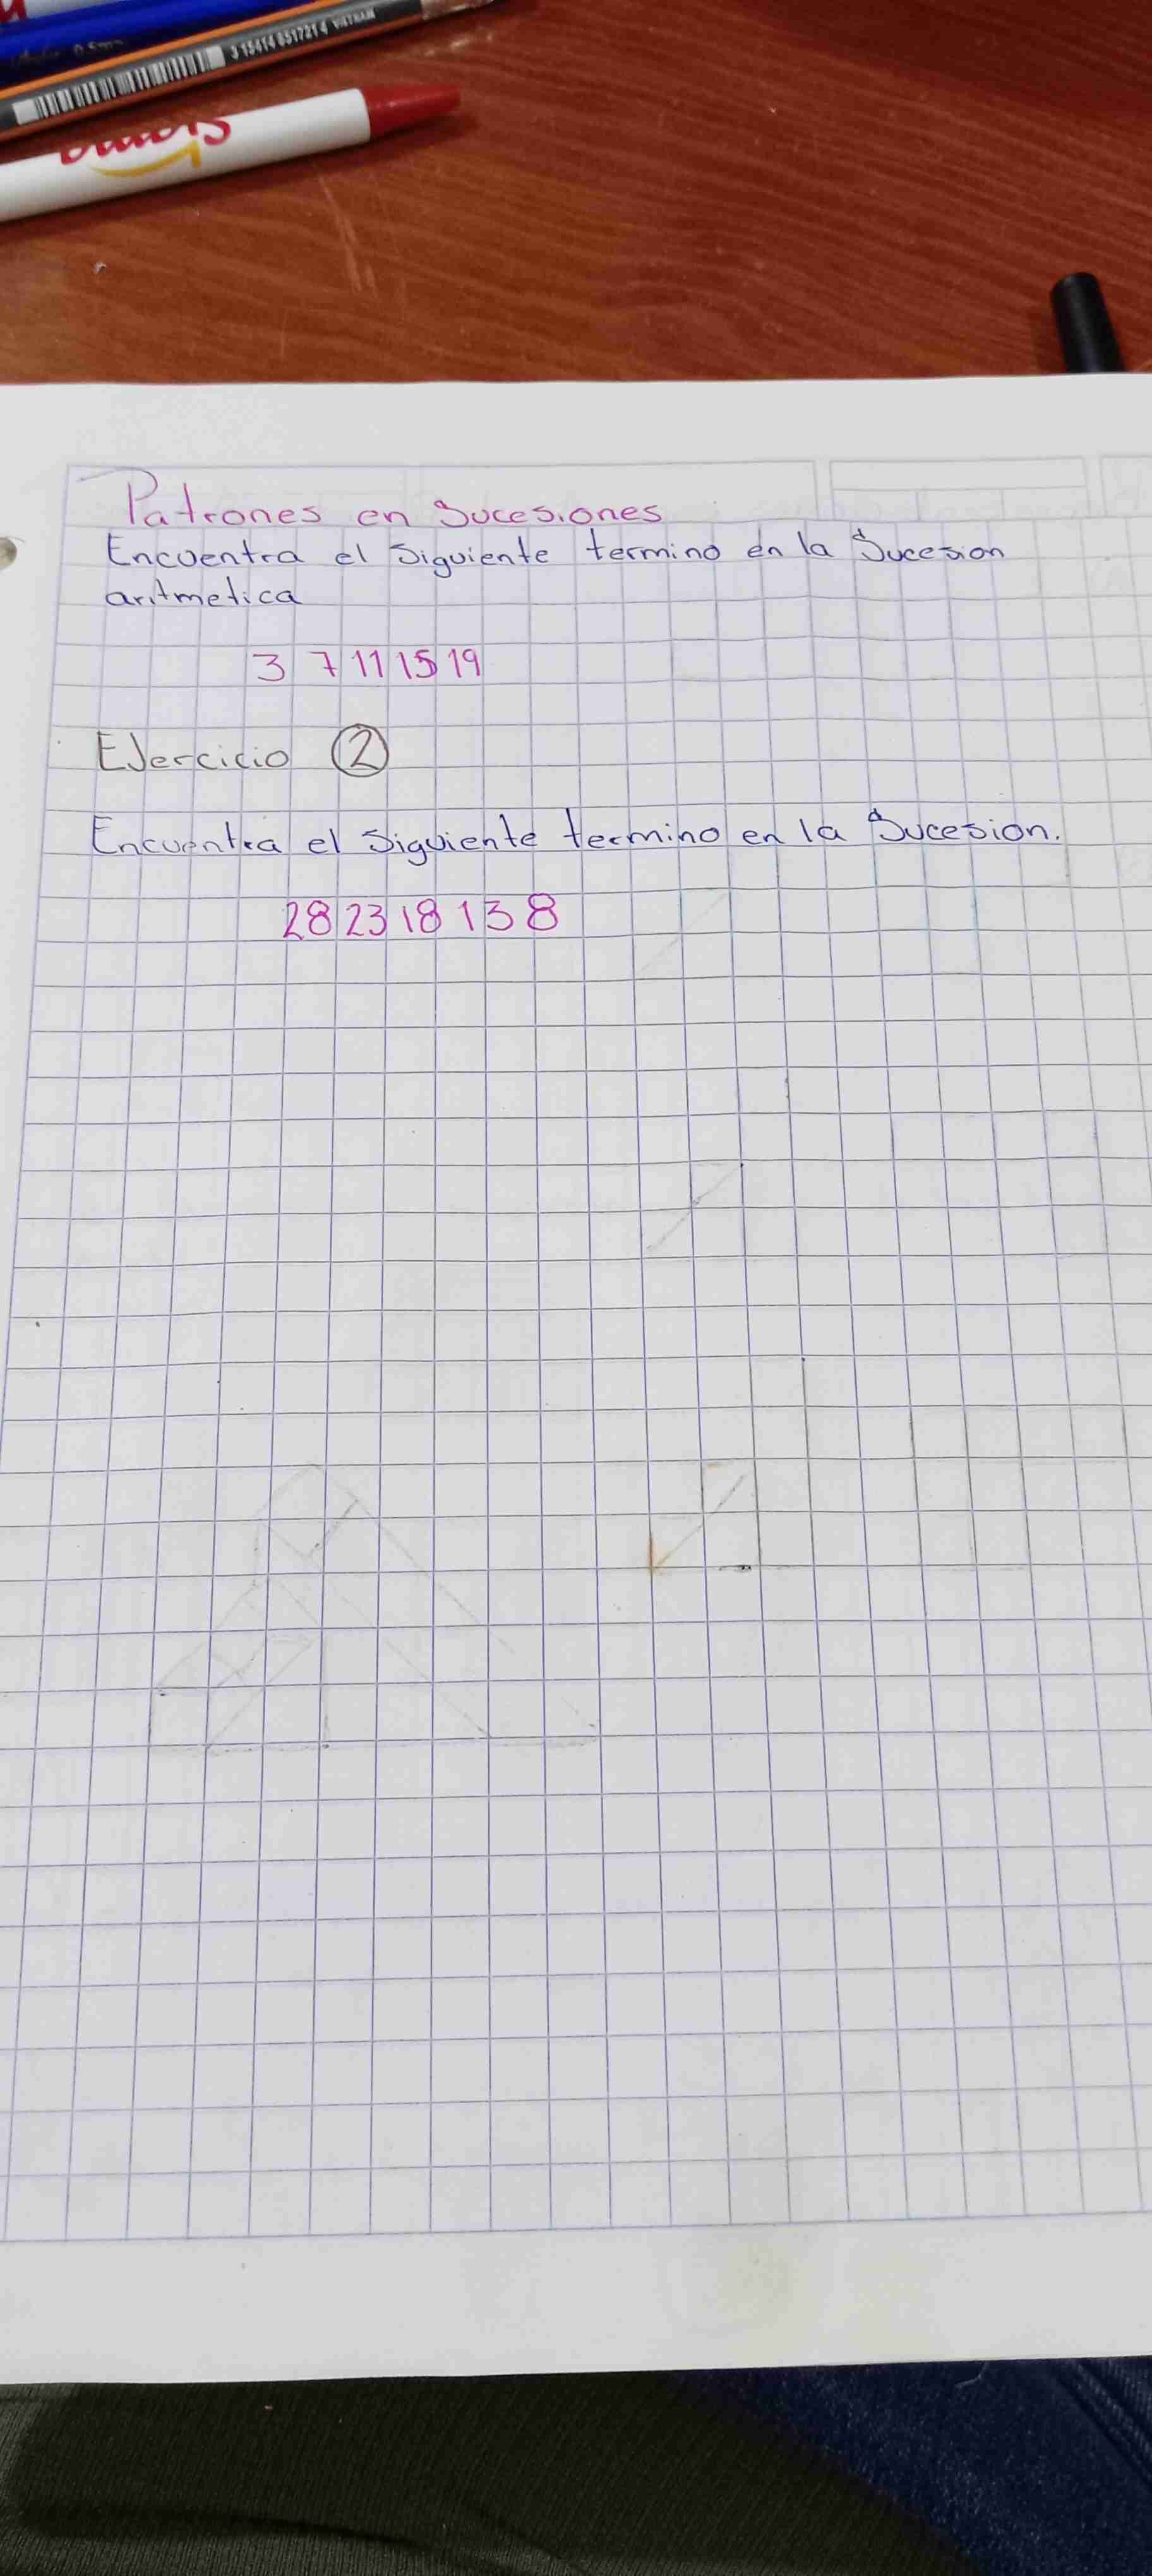 3 15414 851721 4 VIETNAM
Patrones en Sucesiones
Encuentra el Siguiente termino en la Sucesion
aritmetica
3 7 11 15 19
EJercicio 2
Encuentra el Siguiente termino en la Sucesion.
28 23 18 13 8